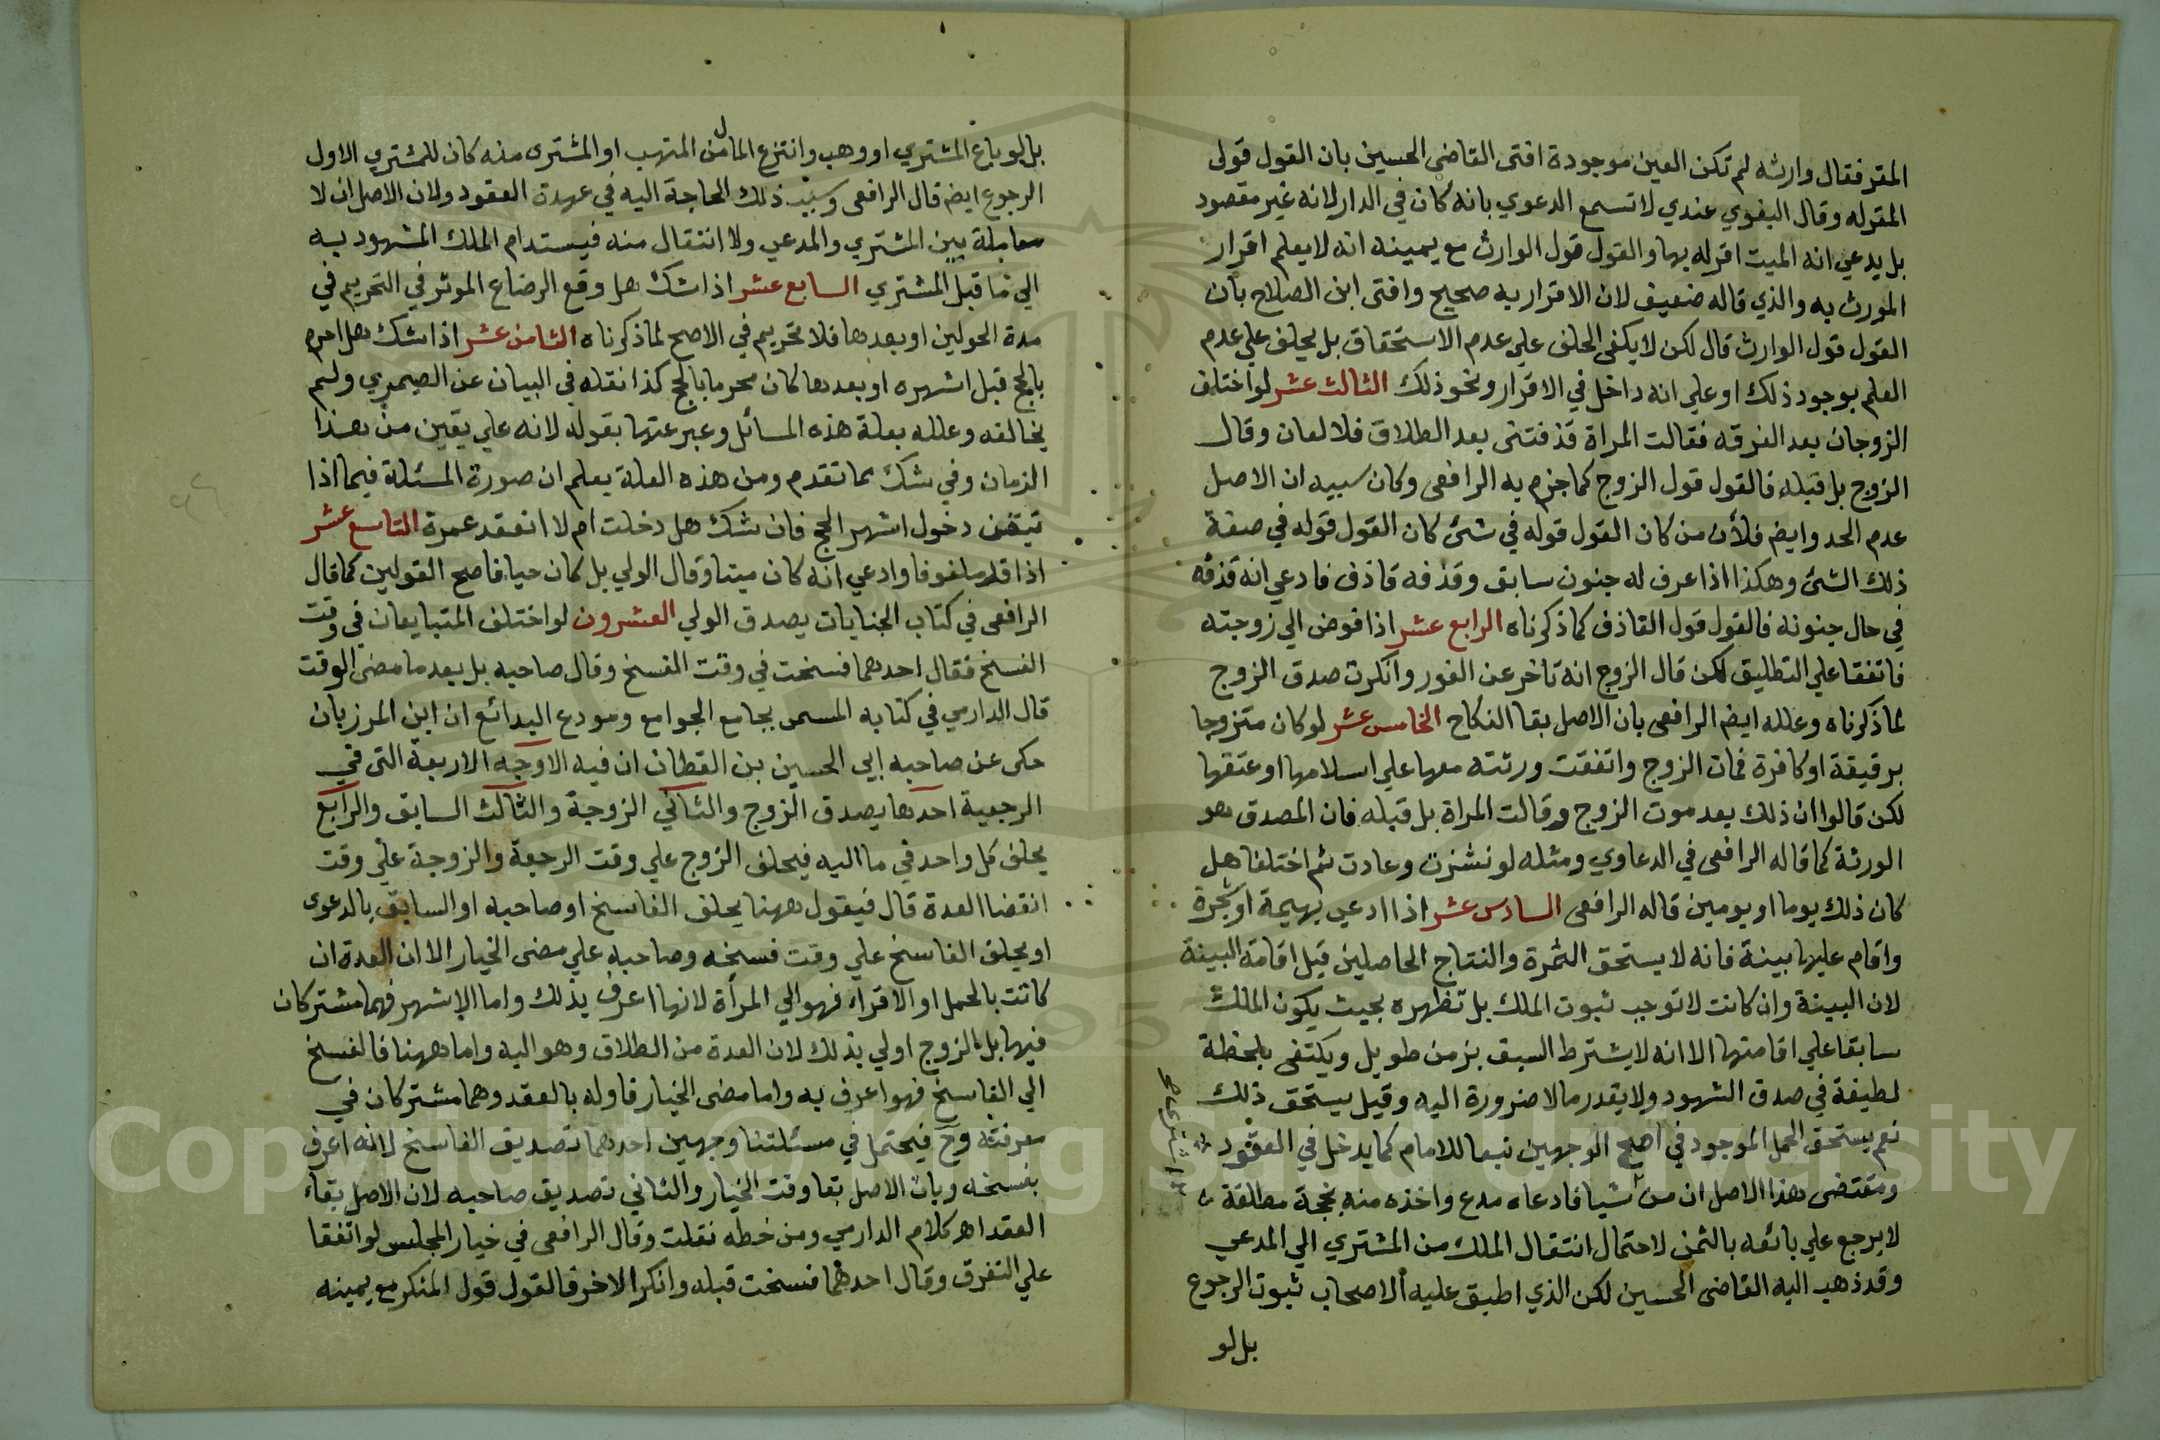 المقر فقال وارثه لم تكن العين موجودة افتى القاضي الحسين بان القول قول
المقر له وقال البغوي عندي لا تسمع الدعوي بانه كان في الدار لانه غير مقصود
بل يدعي انه الميت اقر له بها والقول قول الوارث مع يمينه انه لا يعلم اقرار
المورث به والذي قاله ضعيف لان الاقرار به صحيح وافتى ابن الصلاح بان
القول قول الوارث قال لكن لا يكفى الحلف علي عدم الاستحقاق بل يحلف علي عدم
العلم بوجود ذلك او علي انه داخل في الاقرار ونحو ذلك الثالث عشر لو اختلف
الزوجان بعد الفرقه فقالت المراة قذفتني بعد الطلاق فلا لعان وقال
الزوج بل قبله فالقول قول الزوج كما جزم به الرافعى وكان سببه ان الاصل
عدم الحد وايضا فلأن من كان القول قوله في شئ كان القول قوله في صفة
ذلك الشئ وهكذا اذا عرف له جنون سابق وقذفه قاذف فادعي انه قذفه
في حال جنونه فالقول قول القاذف كما ذكرناه الرابع عشر اذا فوض الي زوجته
فاتفقا علي التطليق لكن قال الزوج انه تاخر عن الفور وانكرت صدق الزوج
لما ذكرناه وعلله ايضا الرافعى بان الاصل بقا النكاح الخامس عشر لو كان متزوجا
برقيقة او كافرة فمات الزوج واتفقت ورثته معها علي اسلامها او عتقها
لكن قالوا ان ذلك بعد موت الزوج وقالت المراة بل قبله فان المصدق هو
الورثة كما قاله الرافعى في الدعاوي ومثله لو نشزت وعادت ثم اختلفا هل
كان ذلك يوما او يومين قاله الرافعى السادس عشر اذا ادعي بهيمة او شجرة
واقام عليها بينة فانه لا يستحق الثمرة والنتاج الحاصلين قبل اقامة البينة
لان البينة وان كانت لا توجب ثبوت الملك بل تظهره بحيث يكون الملك
سابقا علي اقامتها الا انه لا يشترط السبق بزمن طويل ويكتفى بلحظة
لطيفة في صدق الشهود ولا يقدر ما لا ضرورة اليه وقيل يستحق ذلك
نعم يستحق الحمل الموجود في اصح الوجهين تبعا للامام كما يدخل في العقود
ومقتضى هذا الاصل ان من شيا فادعاه مدع واخذه منه بحجة مطلقة
لا يرجع علي بائعه بالثمن لاحتمال انتقال الملك من المشتري الي المدعي
وقد ذهب اليه القاضى الحسين لكن الذي اطبق عليه الاصحاب ثبوت الرجوع
بل لو
بل لو باع المشتري او وهب وانتزع المال من المتهب او المشترى منه كان للمشتري الاول
الرجوع ايضا قال الرافعى وسبب ذلك الحاجة اليه في عهدة العقود ولان الاصل ان لا
معاملة بين المشتري والمدعي ولا انتقال منه فيستدام الملك المشهود به
الي ما قبل المشتري السابع عشر اذا شك هل وقع الرضاع الموثر في التحريم في
مدة الحولين او بعدها فلا تحريم في الاصح لما ذكرناه الثامن عشر اذا شك هل احرم
بالحج قبل اشهره او بعدها كان محرما بالحج كذا نقله في البيان عن الصيمري ولم
يخالفه وعلله بعلة هذه المسائل وعبر عتها بقوله لانه علي يقين من هذا
الزمان وفي شك مما تقدم ومن هذه العلة يعلم ان صورة المسئلة فيما اذا
تيقن دخول اشهر الحج فان شك هل دخلت ام لا انعقد عمرة التاسع عشر
اذا قد ملفوفا وادعي انه كان ميتا وقال الولي بل كان حيا فاصح القولين كما قال
الرافعى في كتاب الجنايات يصدق الولي العشرون لو اختلف المتبايعان في وقت
الفسخ فقال احدهما فسخت في وقت الفسخ وقال صاحبه بل بعد ما مضى الوقت
قال الدارمي في كتابه المسمى بجامع الجوامع ومودع البدائع ان ابن المرزبان
حكى عن صاحبه ابي الحسين بن القطان ان فيه الاوجه الاربعة التى في
الرجعية احدها يصدق الزوج والثاني الزوجة والثالث السابق والرابع
يحلف كل واحد في ما اليه فيحلف الزوج علي وقت الرجعة والزوجة علي وقت
انقضا العدة قال فيقول ههنا يحلف الفاسخ او صاحبه او السابق بالدعوى
او يحلف الفاسخ علي وقت فسخه وصاحبه علي مضى الخيار الا ان العدة ان
كانت بالحمل او الاقراء فهو الي المرأة لانها اعرف بذلك واما الاشهر فهما مشتركان
فيها بل الزوج اولي بذلك لان العدة من الطلاق وهو اليه واما ههنا فالفسخ
الي الفاسخ فهو اعرف به واما مضى الخيار فاوله بالعقد وهما مشتركان في
معرفته وح فيحتمل في مسئلتنا وجهين احدهما تصديق الفاسخ لانه اعرف
بفسخه وبان الاصل بقا وقت الخيار والثاني تصديق صاحبه لان الاصل بقاء
العقد اهـ كلام الدارمي ومن خطه نقلت وقال الرافعى في خيار المجلس لو اتفقا
علي التفرق وقال احدهما فسخت قبله وانكر الاخر فالقول قول المنكر مع يمينه
Copyright © King Saud University